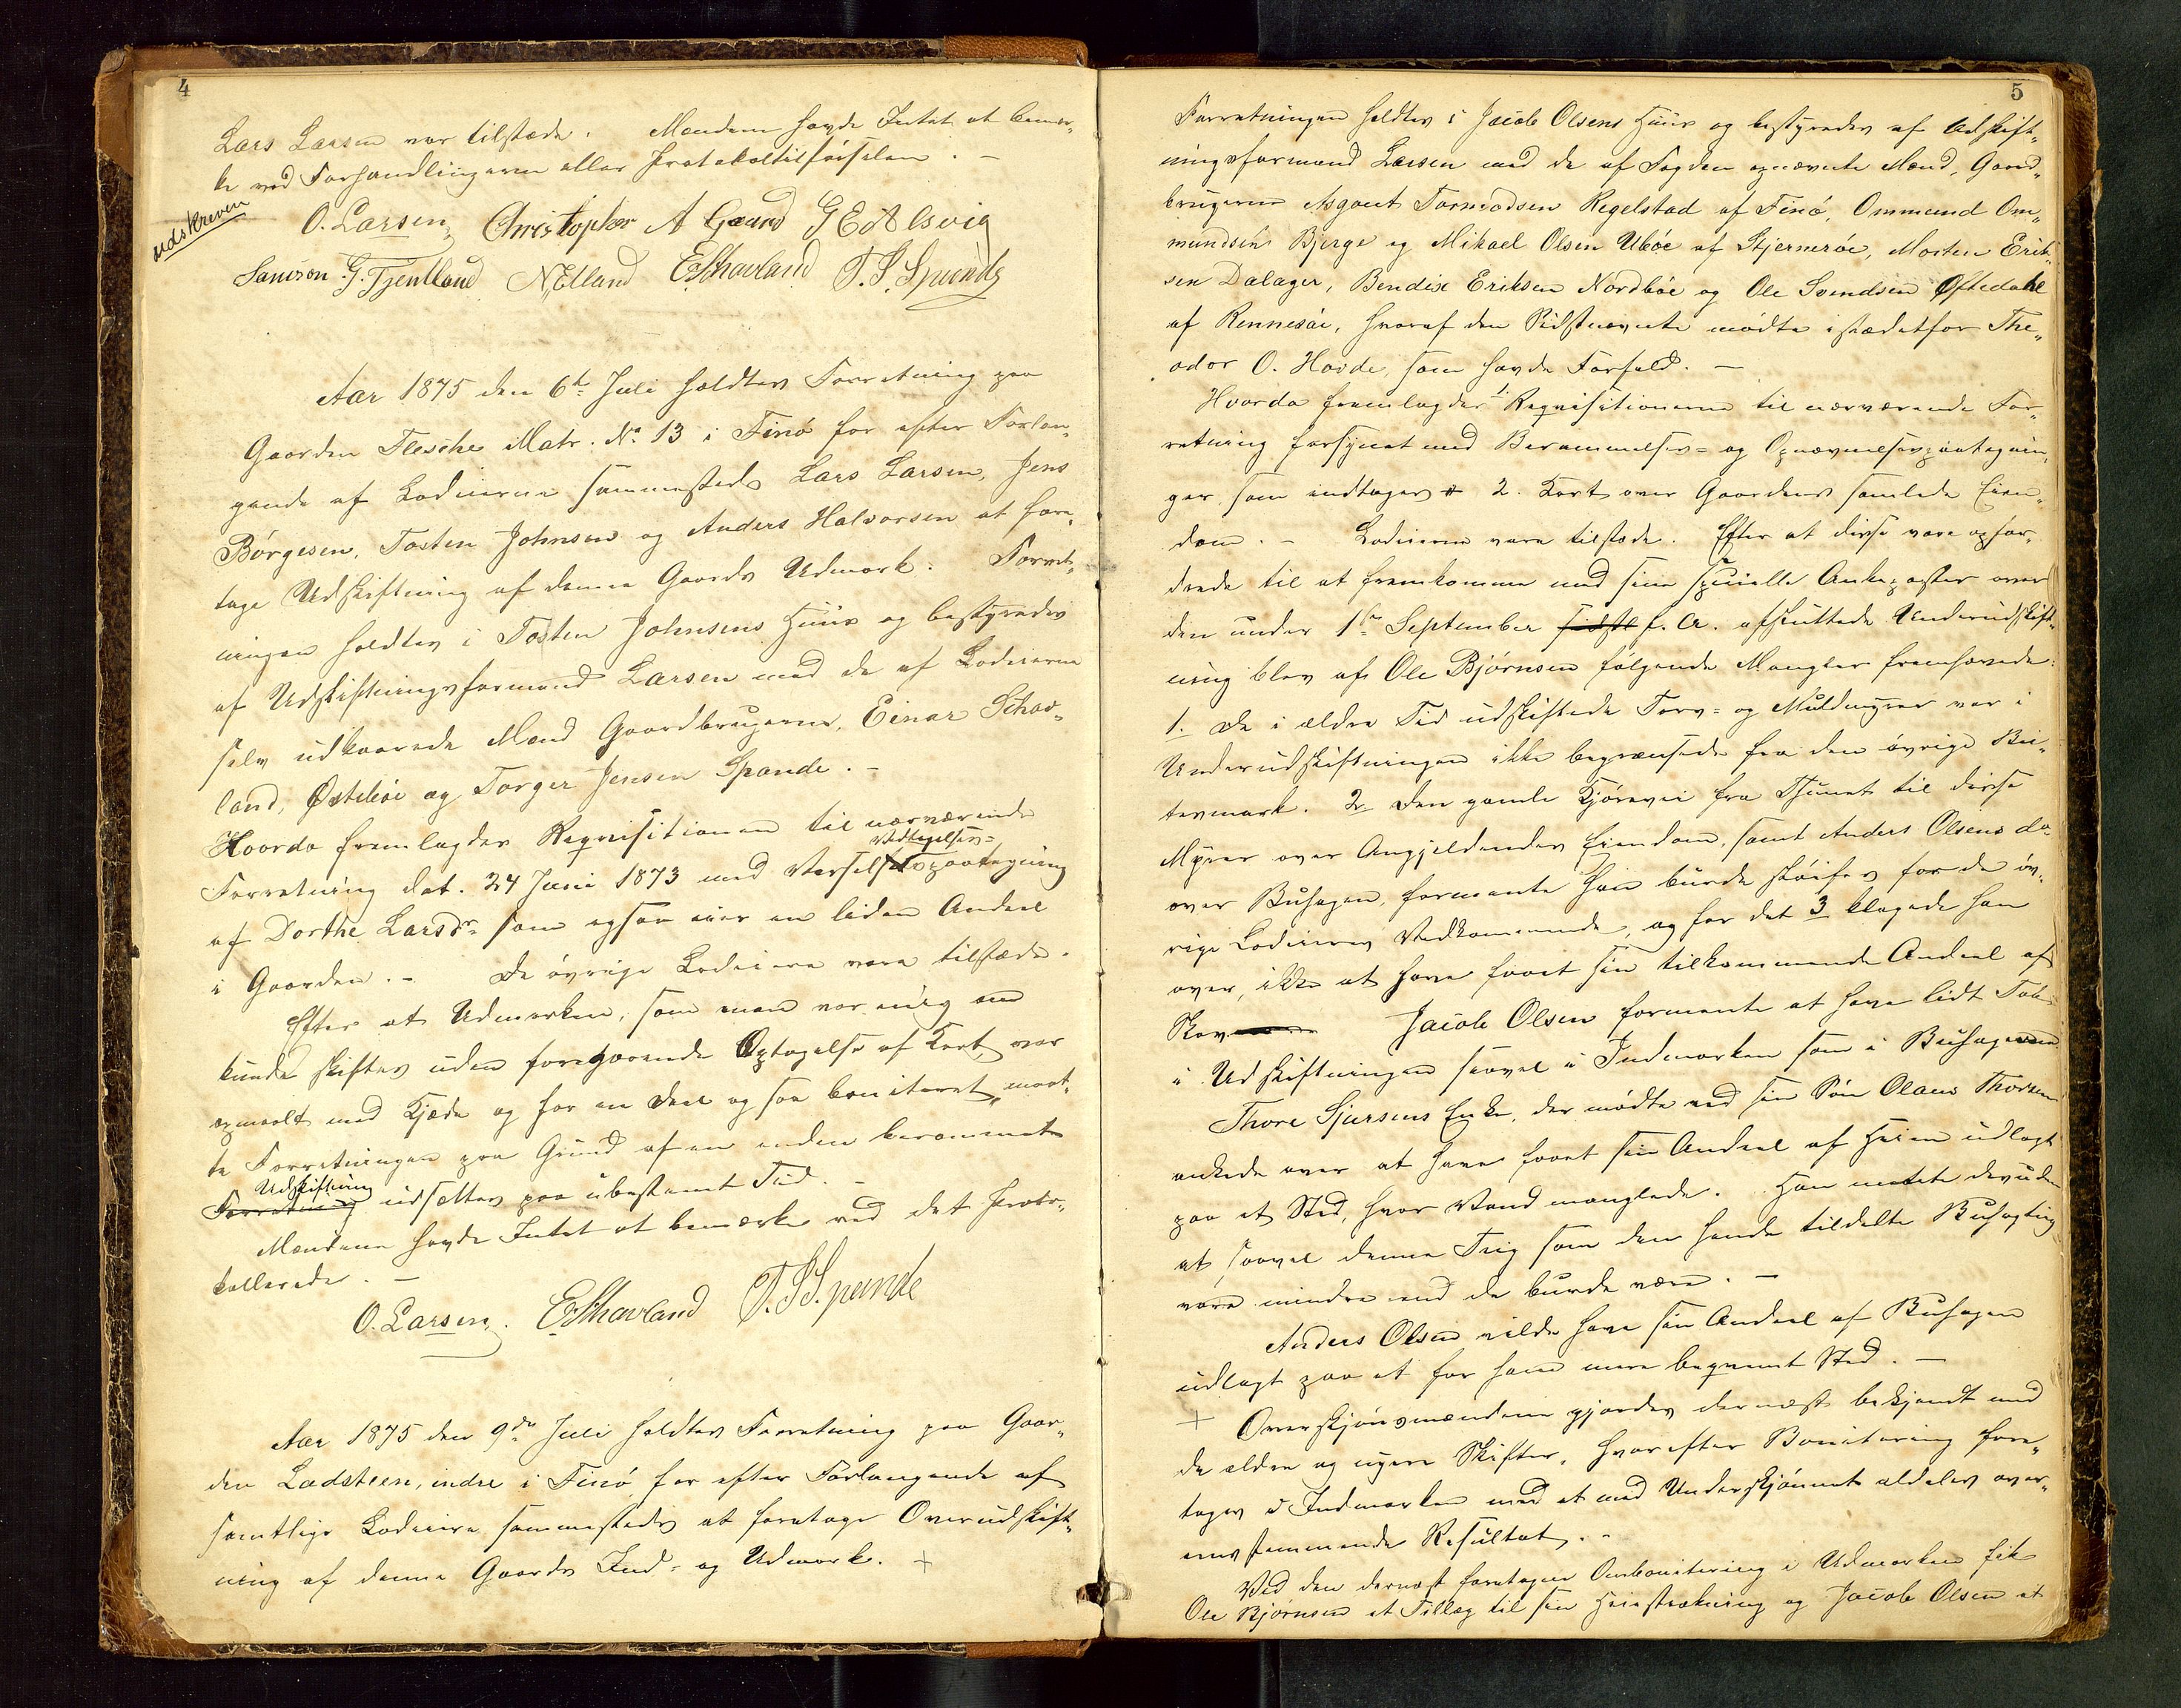 4
Lars Larsen var tilstæde. Mændene havde Intet at bemær„
ke ved Forhandlingerne eller Protokoltilførselen. –
udskreven
O. Larsen, Christopher A Gaard G E Alsvig
Samson G. Tjentland N. Elland E Skavland T. J. Spande
Aar 1875 den 6te Juli holdtes Forretning paa
Gaarden Flesche Matr. No 13 i Finø for efter Forlan„
gende af Lodeierne sammesteds Lars Larsen, Jens
Børgesen, Tosten Johnsen og Anders Halvorsen at fore„
tage Udskiftning af denne Gaards Udmark. Forret„
ningen holdtes i Tosten Johnsens Huus og bestyredes
af Udskiftningsformand Larsen med de af Lodeierne
selv udkaarede Mænd Gaardbrugerne, Einar Schav„
land, Østebøe og Torger Jensen Spande. –
Hvorda fremlagdes Requisitionen til nærværende
Vedtagelses=
Forretning dat. 24 Juni 1873 med Varselspaategning
af Dorthe Larsdr som ogsaa eier en liden Andeel
i Gaarden. – De øvrige Lodeiere vare tilstæde.
Efter at Udmarken, som man var enig om
kunde skiftes uden foregaaende Optagelse af Kart, var
opmaalt med Kjæde og for en Deel og saa boniteret, maat„
te Forretningen paa Grund af en anden berammet
Udskiftning
Forretning udsættes paa ubestemt Tid. –
Mændene havde Intet at bemærke ved det Proto„
kollerede. –
O. Larsen. E Skavland T. J Spande
Aar 1875 den 9de Juli holdtes Forretning paa Gaar„
den Ladsteen, indre i Finø for efter Forlangende af
samtlige Lodeiere sammesteds at foretage Overudskift„
ning af denne Gaards Ind= og Udmark. +
5
Forretningen holdtes i Jacob Olsens Huus og bestyredes af Udskift„
ningsformand Larsen med de af Fogden opnævnte Mænd, Gaard„
brugerne Asgout Tormodsen Regelstad af Finø, Ommund Om„
mundsen Bjerge og Mikael Olsen Ubøe af Stjernerøe, Morten Erik„
sen Dalager, Bendix Eriksen Nordbøe og Ole Svendsen Øftedahl
af Rennesøe, hvoraf den Sidstnævnte mødte istædetfor The„
odor O. Hovde, som havde Forfald. –
Hvorda fremlagdes 1. Requisitionerne til nærværende For„
retning forsynet med Berammelses= og Opnævnelsespaategnin„
ger som indtages 2. Kart over Gaardens samlede Eien„
dom. – Lodeierne vare tilstede. Efter at disse vare opfor„
drede til at fremkomme med sine specielle Ankeposter over
den under 1ste September sidstl f. A. afsluttede Underudskift„
ning blev af Ole Bjørnsen følgende Mangler fremhævede:
1. De i ældre Tid udskiftede Torv= og Muldmyrer var i
Underudskiftningen ikke begrænsede fra den øvrige Bei„
tesmark. 2 den gamle Kjørevei fra Thunet til disse
Myrer over Angjeldendes Eiendom, samt Anders Olsens do
over Buhagen, formente han burde sløifes for de øv„
rige Lodeieres Vedkommende, og for det 3 klagede han
over, ikke at have faaet sin tilkommende Andeel af
Skov Jacob Olsen formente at have lidt Tab
i Udskiftningen saavel i Indmarken som i Buhagene
Thore Sjursens Enke, der mødte ved sin Søn Olaus Thorsen
ankede over at have faaet sin Andeel af Heien udlagt
paa et Sted, hvor Vand manglede. Han mente desuden
at saavel denne Teig som den hende tildelte Buhagteig
vare mindre end de burde være. –
Anders Olsen vilde have sin Andeel af Buhagen
udlagt paa et for ham mere beqvemt Sted. –
+ Overskjønsmændene gjordes dernæst bekjendt med
de ældre og nyere Skifter, hvorefter Bonitering fore„
toges i Indmarken med et med Underskjønnet aldeles over„
ensstemmende Resultat. –
Ved den dernæst foretagne Ombonitering i Udmarken fik
Ole Bjørnsen et Tillæg til sin Heiestrækning og Jacob Olsen et